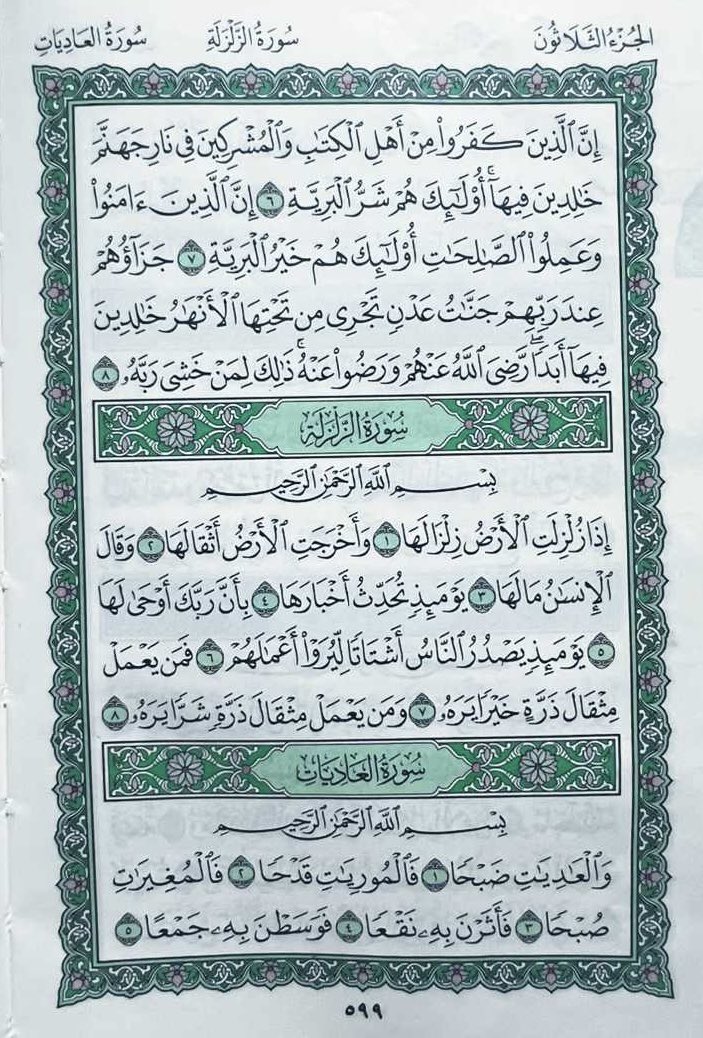 الجزء الثلاثون
سورة الزلزلة
سورة العاديات
إِنَّ ٱلَّذِينَ كَفَرُوا۟ مِنْ أَهْلِ ٱلْكِتَٰبِ وَٱلْمُشْرِكِينَ فِى نَارِ جَهَنَّمَ
خَٰلِدِينَ فِيهَآ ۚ أُو۟لَٰٓئِكَ هُمْ شَرُّ ٱلْبَرِيَّةِ ٦ إِنَّ ٱلَّذِينَ ءَامَنُوا۟
وَعَمِلُوا۟ ٱلصَّٰلِحَٰتِ أُو۟لَٰٓئِكَ هُمْ خَيْرُ ٱلْبَرِيَّةِ ٧ جَزَآؤُهُمْ
عِندَ رَبِّهِمْ جَنَّٰتُ عَدْنٍ تَجْرِى مِن تَحْتِهَا ٱلْأَنْهَٰرُ خَٰلِدِينَ
فِيهَآ أَبَدًا ۖ رَّضِىَ ٱللَّهُ عَنْهُمْ وَرَضُوا۟ عَنْهُ ۚ ذَٰلِكَ لِمَنْ خَشِىَ رَبَّهُۥ ٨
سُورَةُ الزَّلْزَلَةِ
بِسْمِ ٱللَّهِ ٱلرَّحْمَٰنِ ٱلرَّحِيمِ
إِذَا زُلْزِلَتِ ٱلْأَرْضُ زِلْزَالَهَا ١ وَأَخْرَجَتِ ٱلْأَرْضُ أَثْقَالَهَا ٢ وَقَالَ
ٱلْإِنسَٰنُ مَا لَهَا ٣ يَوْمَئِذٍ تُحَدِّثُ أَخْبَارَهَا ٤ بِأَنَّ رَبَّكَ أَوْحَىٰ لَهَا
٥ يَوْمَئِذٍ يَصْدُرُ ٱلنَّاسُ أَشْتَاتًا لِّيُرَوْا۟ أَعْمَٰلَهُمْ ٦ فَمَن يَعْمَلْ
مِثْقَالَ ذَرَّةٍ خَيْرًا يَرَهُۥ ٧ وَمَن يَعْمَلْ مِثْقَالَ ذَرَّةٍ شَرًّا يَرَهُۥ ٨
سُورَةُ العَادِيَاتِ
بِسْمِ ٱللَّهِ ٱلرَّحْمَٰنِ ٱلرَّحِيمِ
وَٱلْعَٰدِيَٰتِ ضَبْحًا ١ فَٱلْمُورِيَٰتِ قَدْحًا ٢ فَٱلْمُغِيرَٰتِ
صُبْحًا ٣ فَأَثَرْنَ بِهِۦ نَقْعًا ٤ فَوَسَطْنَ بِهِۦ جَمْعًا ٥
٥٩٩